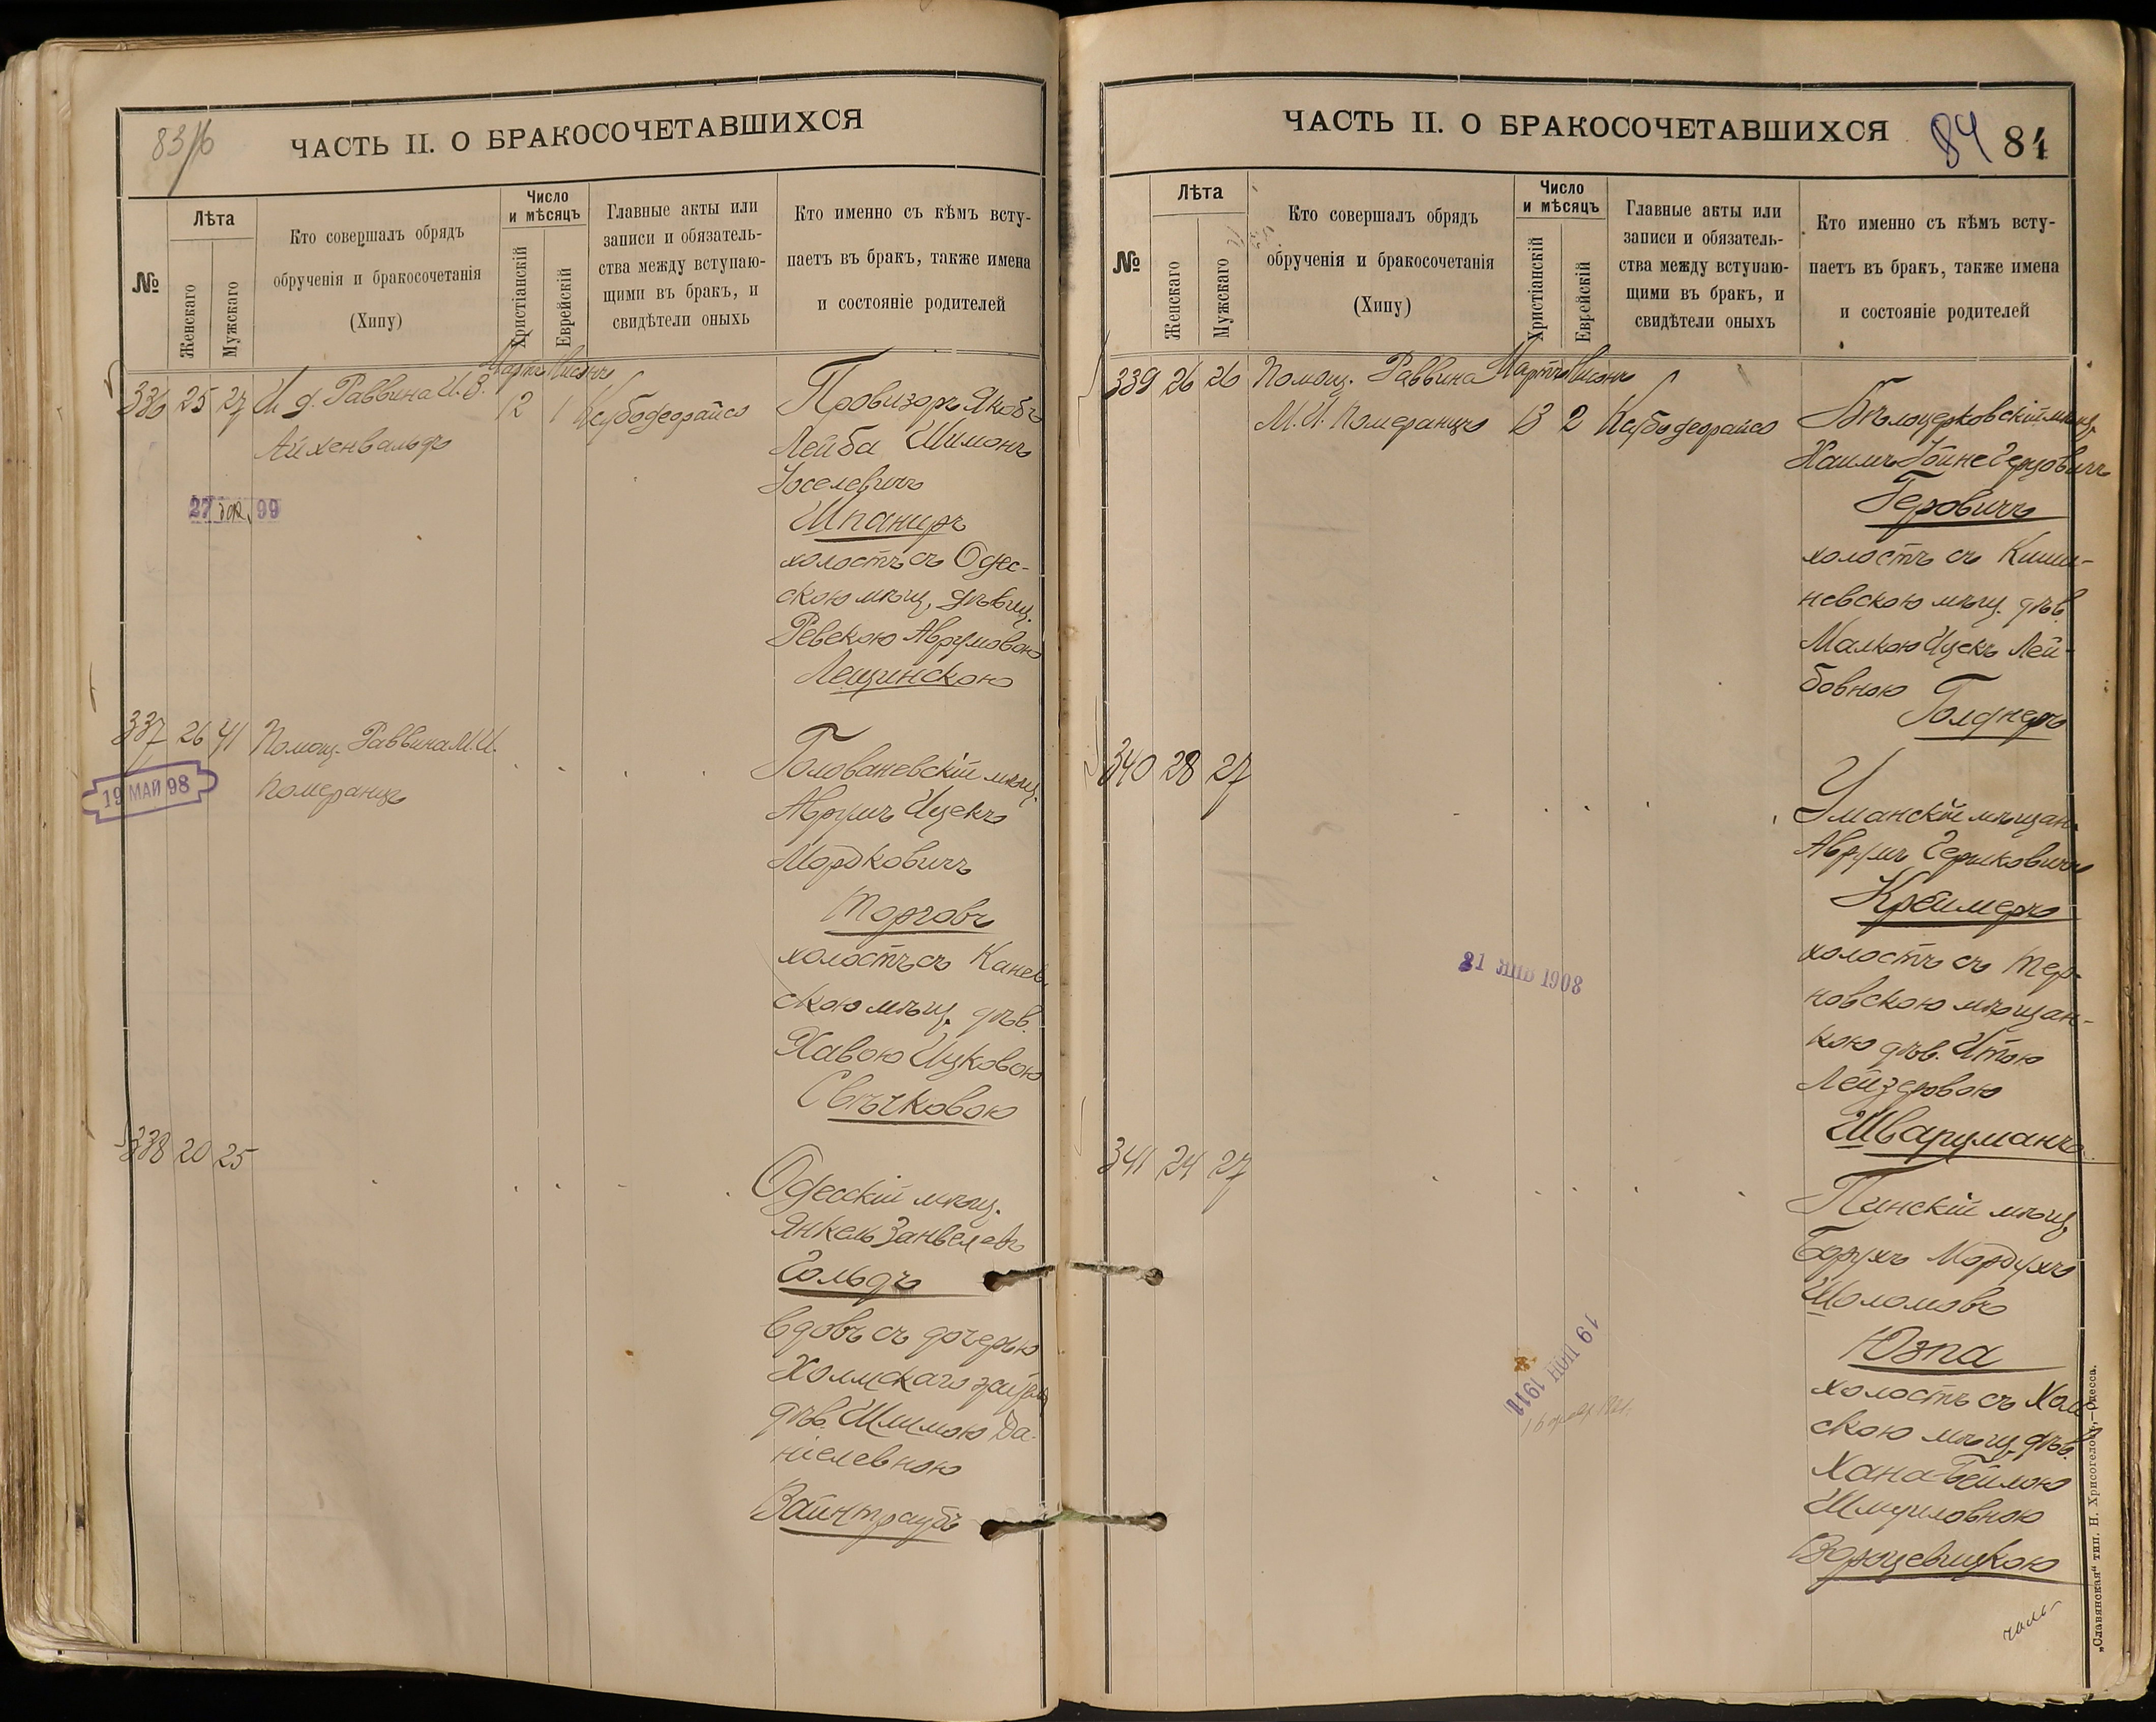 83/б
ЧАСТЬ II. О БРАКОСОЧЕТАВШИХСЯ
№
Лѣта
Женскаго
Мужскаго
Кто совершалъ обрядъ
обрученія и бракосочетанія
(Хипу)
Число
и мѣсяцъ
Христіанскій
Еврейскій
Главные акты или
записи и обязатель-
ства между вступаю-
щими въ бракъ, и
свидѣтели оныхъ
Кто именно съ кѣмъ всту-
паетъ въ бракъ, также имена
и состояніе родителей
336 25 27 И. д. Раввина И. З.
Айхенвальдъ
Мартъ Нисонъ
12 1 Ксубодеорайсо
Провизоръ Якобъ
Лейба Шимонъ
Іоселевичъ
Шпаниръ
холостъ съ Одес-
скою мѣщ. дѣвиц.
Ревекою Аврумовою
Лещинскою
27 дек. 99
337 26 41 Помощ. Раввина М. И.
Померанцъ
19 МАЙ 98
Голованевскій мѣщ.
Аврумъ Ицекъ
Мордковичъ
Торговъ
холостъ съ Канев-
скою мѣщ. дѣв.
Хавою Ицковою
Свѣчковою
338 20 25
Одесскій мѣщ.
Янкель Занвелевъ
Гольдъ
вдовъ съ дочерью
Холмскаго
дѣв. Шимою Да-
ніелевною
Вайнтраубъ
ЧАСТЬ II. О БРАКОСОЧЕТАВШИХСЯ
84 84
№
Лѣта
Женскаго
Мужскаго
Кто совершалъ обрядъ
обрученія и бракосочетанія
(Хипу)
Число
и мѣсяцъ
Христіанскій
Еврейскій
Главные акты или
записи и обязатель-
ства между вступаю-
щими въ бракъ, и
свидѣтели оныхъ
Кто именно съ кѣмъ всту-
паетъ въ бракъ, также имена
и состояніе родителей
339 26 26 Помощ. Раввина
М. И. Померанцъ
Мартъ Нисонъ
13 2 Ксубодеорайсо
Бѣлоцерковскій мѣщ.
Хаимъ Іойне Герцовичъ
Геровичъ
холостъ съ Киши-
невскою мѣщ. дѣв.
Малкою Ицекъ Лей-
бовною
Голднеръ
340 28 27
Уманскій мѣщан.
Аврумъ Гершковичъ
Креймеръ
холостъ съ Тер-
новскою мѣщан-
кою дѣв. Итою
Лейзеровою
Шварцманъ
21 ЯНВ 1908
341 24 27
Пинскій мѣщ.
Борухъ Мордухъ
Шоломовъ
Юзпа
холостъ съ
скою мѣщ. дѣв.
Хана-Беймою
Шмуиловною
Ворцевицкою
19 ІЮН 1912
„Славянская“ тип. Н. Хрисогелосъ,—Одесса.